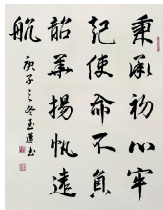 秉承初心牢
記使命不負
韶華揚帆遠
航
庚子之冬玉蓮書